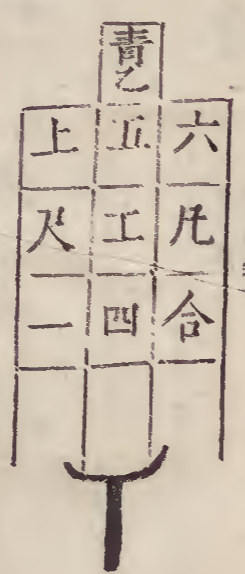 六凡合
青乙五工四
上尺一